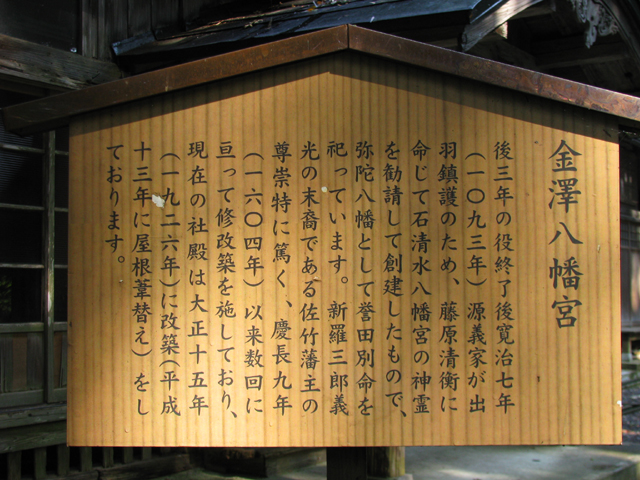 金澤八幡宮
後三年の役終了後寛治七年
（一〇九三年）源義家が出
羽鎮護のため、藤原清衡に
命じて石清水八幡宮の神霊
を勧請して創建したもので、
弥陀八幡として誉田別命を
祀っています。新羅三郎義
光の末裔である佐竹藩主の
尊崇特に篤く、慶長九年
（一六〇四年）以来数回に
亘って修改築を施しており、
現在の社殿は大正十五年
（一九二六年）に改築（平成
十三年に屋根葺替え）をし
ております。